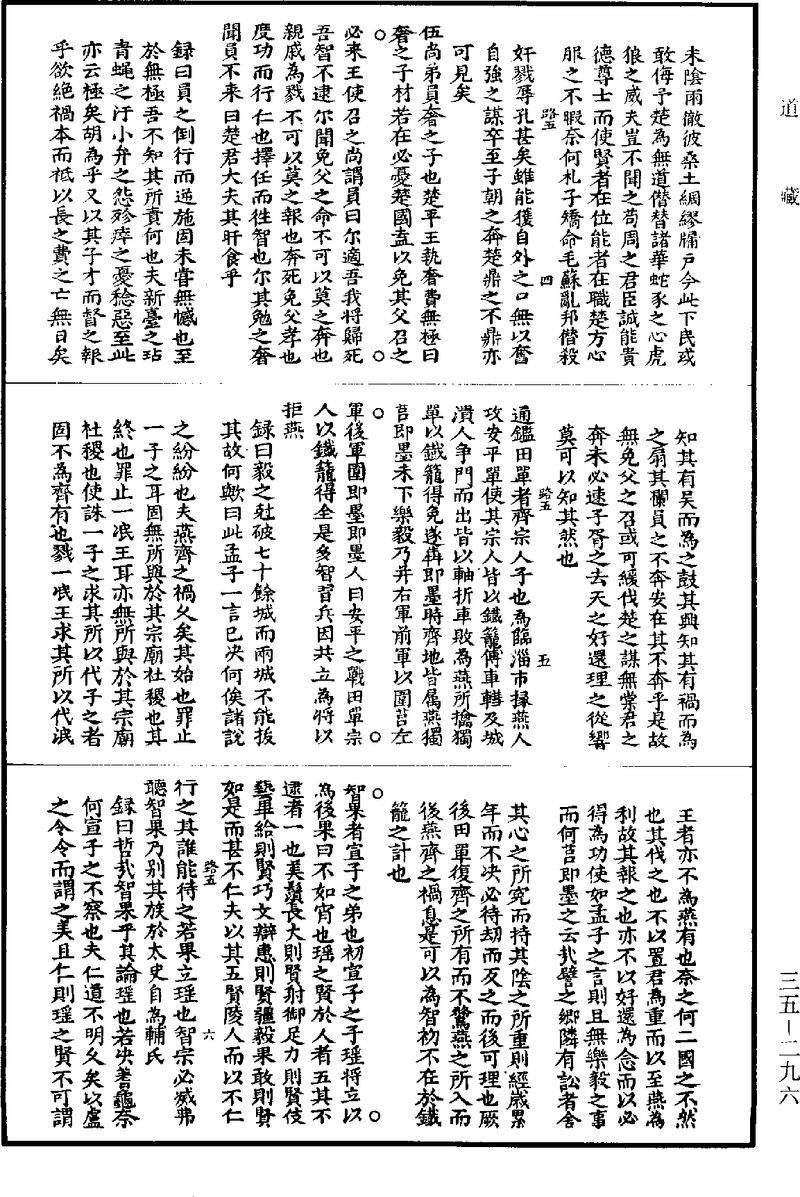 道藏
未陰雨徹彼桑土綢繆牖戶今此下民或
敢侮予楚為無道僭替諸華蛇豕之心虎
狼之威夫豈不聞之苟周之君臣誠能貴
德尊士而使賢者在位能者在職楚方心
服之不暇奈何札子矯命毛蘇亂邦僭殺
奸戮辱孔甚矣雖能獲自外之口無以奮
自強之謀卒至子朝之奔楚鼎之不鼎亦
可見矣
伍尚弟員奢之子也楚平王執奢費無極曰
奢之子材若在必憂楚國盍以免其父召之
必来王使召之尚謂員曰尔適吾我將歸死
吾智不逮尔聞免父之命不可以莫之奔也
親戚為戮不可以莫之報也奔死免父孝也
度功而行仁也擇任而往智也尔其勉之奢
聞員不来曰楚君大夫其旰食乎
録曰員之倒行而逆施固未嘗無憾也至
於無極吾不知其所責何也夫新臺之玷
青蠅之汙小弁之怨殄瘁之憂稔惡至此
亦云極矣胡為乎又以其子才而督之報
乎欲絕禍本而祗以長之費之亡無日矣
路五 四
知其有吴而為之鼓其興知其有禍而為
之扇其爛員之不奔安在其不奔乎是故
無免父之召或可緩伐楚之謀無棠君之
奔未必速子胥之去天之好還理之從響
莫可以知其然也
通鑑田單者齊宗人子也為臨淄市掾燕人
攻安平單使其宗人皆以鐵籠傅車轊及城
潰人争門而出皆以軸折車敗為燕所擒獨
單以鐵籠得免遂奔即墨時齊地皆属燕獨
莒即墨未下樂毅乃并右軍前軍以圍莒左
軍後軍圍即墨即墨人曰安平之戰田單宗
人以鐵籠得全是多智習兵因共立為將以
拒燕
録曰毅之尅破七十餘城而兩城不能拔
其故何歟曰此孟子一言已决何俟諸說
之紛紛也夫燕齊之禍久矣其始也罪止
一子之耳固無所與於其宗廟社稷也其
終也罪止一泯王耳亦無所與於其宗廟
社稷也使誅一子之求其所以代子之者
固不為齊有也戮一泯王求其所以代泯
路五 五
王者亦不為燕有也奈之何二國之不然
也其伐之也不以置君為重而以至燕為
利故其報之也亦不以好還為念而以必
得為功使如孟子之言則且無樂毅之事
而何莒即墨之云哉譬之鄉隣有訟者舍
其心之所究而持其陰之所重則經歲累
年而不决必待劫而反之而後可理也厥
後田單復齊之所有而不驚燕之所入而
後燕齊之禍息是可以為智初不在於鐵
籠之計也
智果者宣子之弟也初宣子之子瑶將立以
為後果曰不如宵也瑶之賢於人者五其不
逮者一也美鬚長大則賢射御足力則賢伎
藝畢給則賢巧文辯惠則賢彊毅果敢則賢
如是而甚不仁夫以其五賢陵人而以不仁
行之其誰能待之若果立瑶也智宗必滅弗
聽智果乃别其族於太史自為輔氏
録曰哲哉智果乎其論瑶也若决蓍龜奈
何宣子之不察也夫仁道不明久矣以盧
之令令而謂之美且仁則瑶之賢不可謂
路五 六
三五－二九六